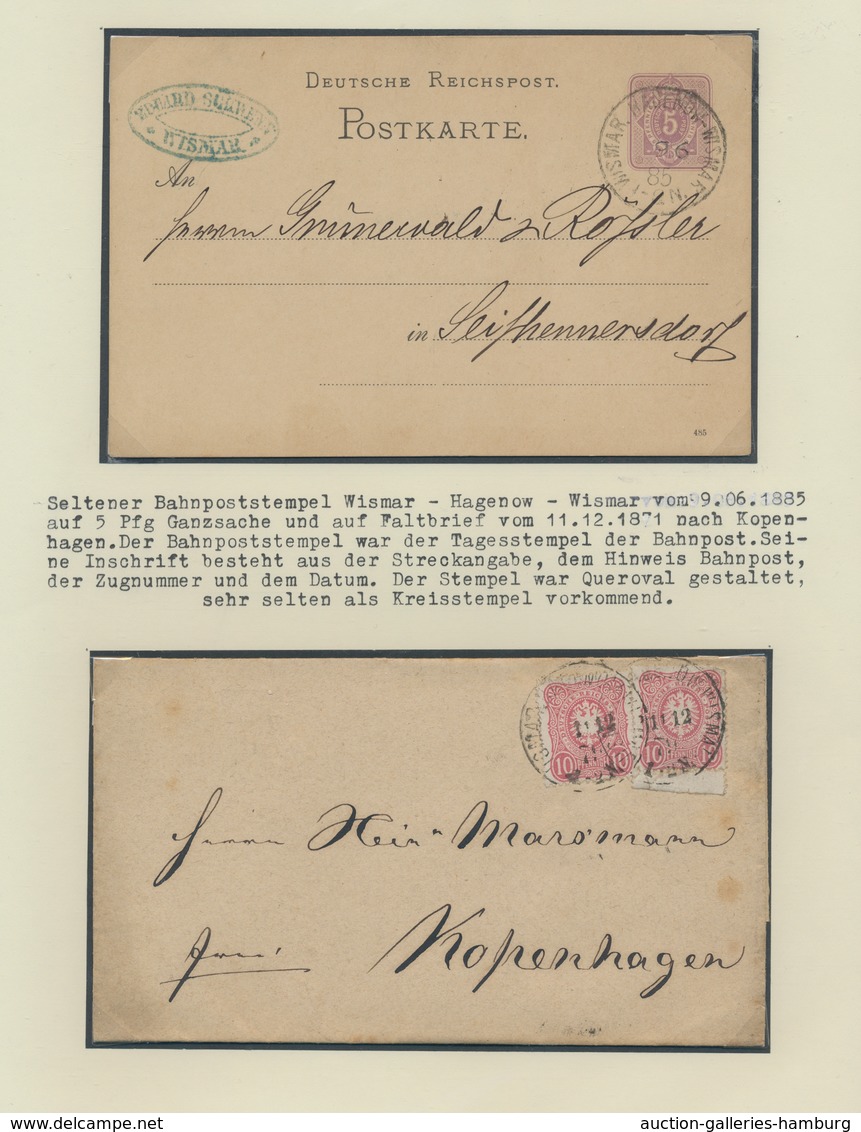 DEUTSCHE REICHSPOST.
POSTKARTE.
WISMAR
WISMAR-HAGENOW-WISMAR
5
9 6
85
An
Herrn Grünerwald & Roßler
in Seifhennersdorf
485
Seltener Bahnpoststempel Wismar - Hagenow - Wismar vom 9.06.1885
auf 5 Pfg Ganzsache und auf Faltbrief vom 11.12.1871 nach Kopen-
hagen.Der Bahnpoststempel war der Tagesstempel der Bahnpost.Sei-
ne Inschrift besteht aus der Streckangabe, dem Hinweis Bahnpost,
der Zugnummer und dem Datum. Der Stempel war Queroval gestaltet,
sehr selten als Kreisstempel vorkommend.
11 12
11 12
10 10
10
WISMAR
Herrn Hein Marsmann
frei
Kopenhagen
auction-galleries-hamburg